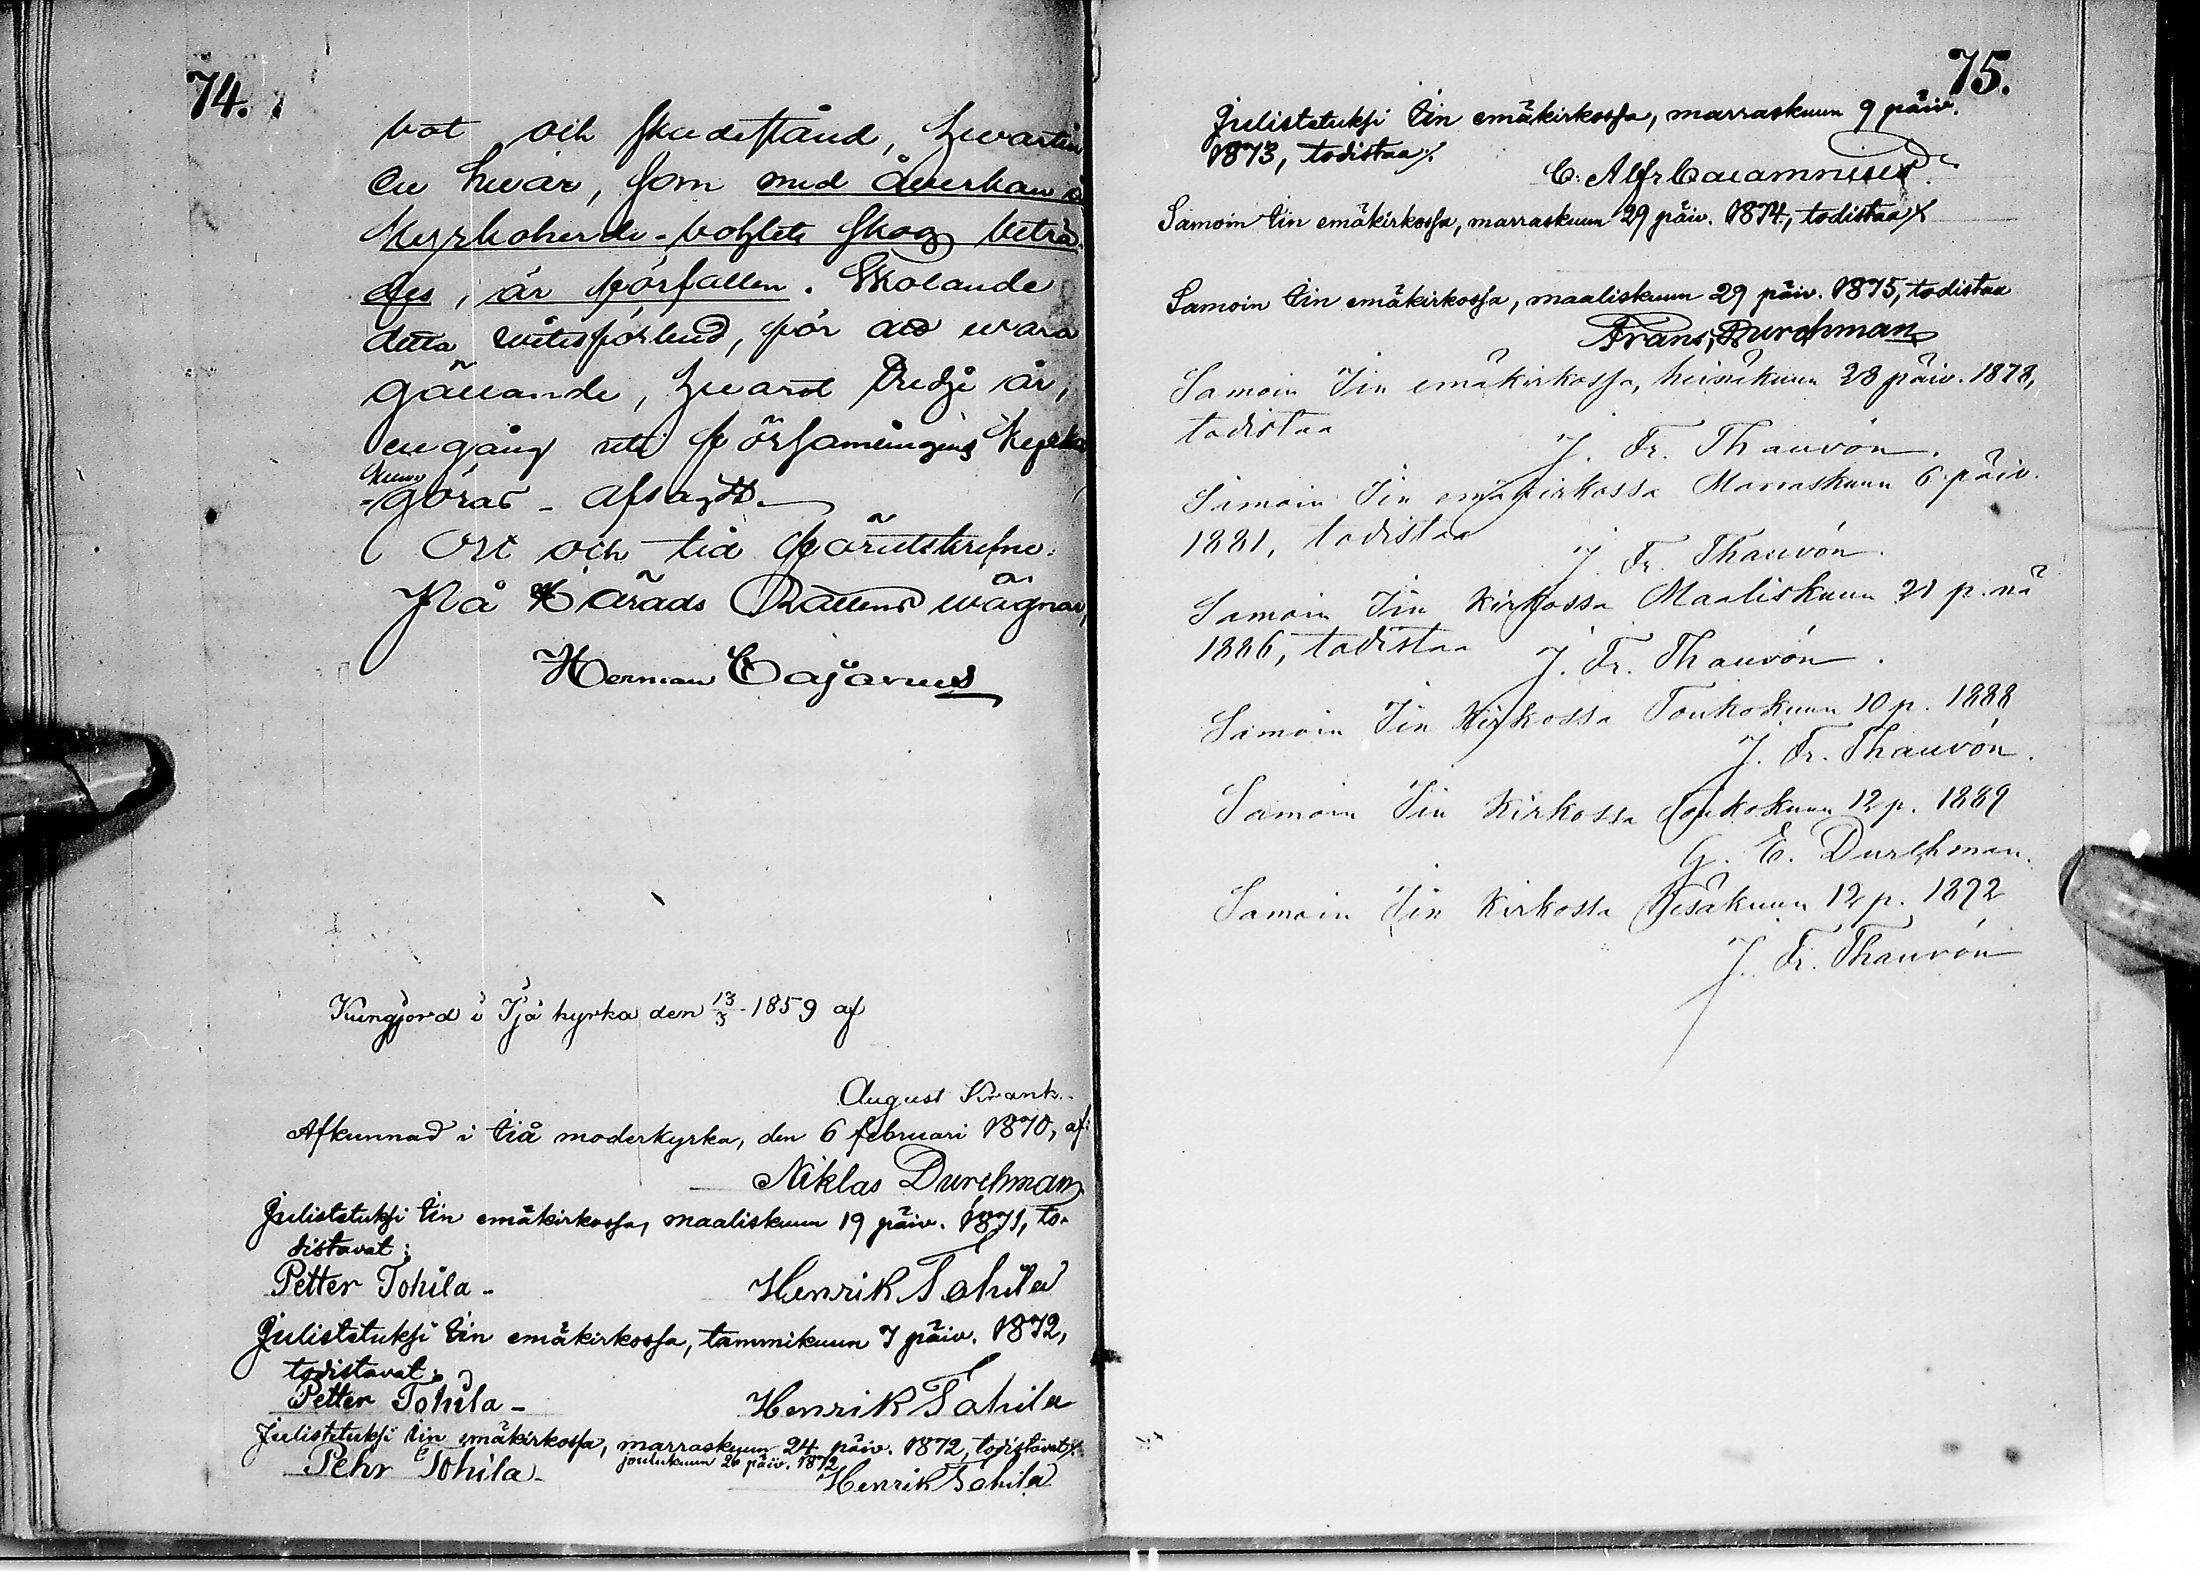 74.
bot och skadestånd, hwartill
en hwar, som med åwerkan å
Kyrkoherde-bohlets skog beträ-
des, är förfallen. Skolande
detta witesförbud, för att wara
gällande, hwart tredje år,
en gång uti Församlingens Kyrka
kun-
göras - Afsagdt.
Ort och tid förutskrefne.
På Härads Rättens wägnar,
Herman Cajanus
Kungjord i Ijå kyrka den 13/3 1859 af
August Krank.
Afkunnad i Iiå moderkyrka, den 6 februari 1870, af:
Niklas Durchman
Julistetuksi Iin emäkirkossa, maaliskuun 19 päiv. 1871, to-
distavat:
Petter Tohila - Henrik Tohila
Julistetuksi Iin emäkirkossa, tammikuun 7 päiv. 1872,
todistavat:
Petter Tohila - Henrik Tohila
Julistetuksi Iin emäkirkossa, marraskuun 24 päiv. 1872, todistavat
joulukuun 26 päiv. 1872
Pehr Tohila - Henrik Tohila
75.
Julistetuksi Iin emäkirkossa, marraskuun 9 päiv.
1873, todistaa
C. Alfr
Samoin Iin emäkirkossa, marraskuun 29 päiv. 1874, todistaa
Samoin Iin emäkirkossa, maaliskuun 29 päiv. 1875, todistaa
Frans Durchman
Samoin Iin emäkirkossa, heinäkuun 28 päiv. 1878,
todistaa
J. Fr. Thauvón.
Samoin Iin emäkirkossa Marraskuun 6 päiv.
1881, todistaa
J. Fr. Thauvón.
Samoin Iin Kirkossa Maaliskuun 21 p. nä
1886, todistaa J. Fr. Thauvón.
Samoin Iin Kirkossa Toukokuun 10 p. 1888
J. Fr. Thauvón.
Samoin Iin Kirkossa Toukokuun 12 p. 1889
G. E. Durchman.
Samoin Iin Kirkossa Kesäkuun 12 p. 1892
J. Fr. Thauvón